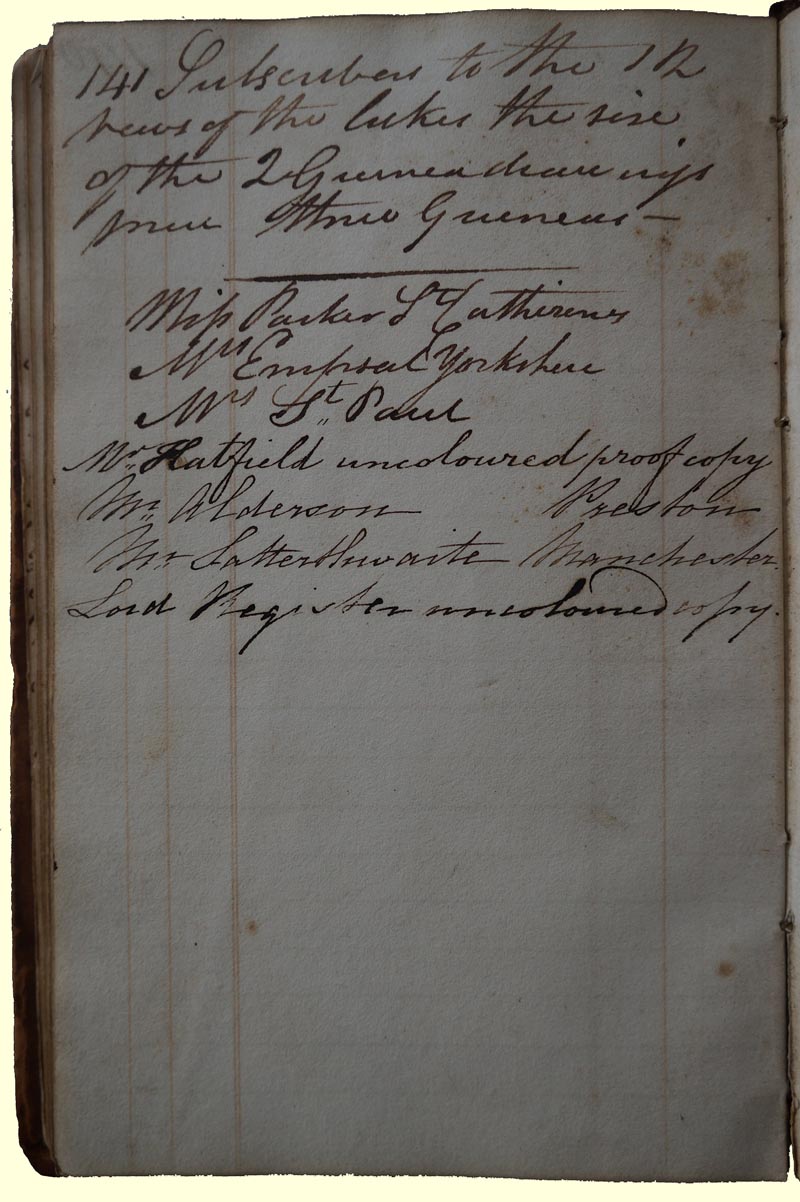 141 Subscribers to the 12
views of the lakes the sise
of the 2 Guinea drawings
price three Guineas —
Miss Parker St Catherines
Mrs Empsal Yorkshire
Mrs St. Paul
Mr. Hatfield uncoloured proof copy
Mr. Alderson Preston
Mr Satterthwaite Manchester.
Lord Register uncoloured copy.